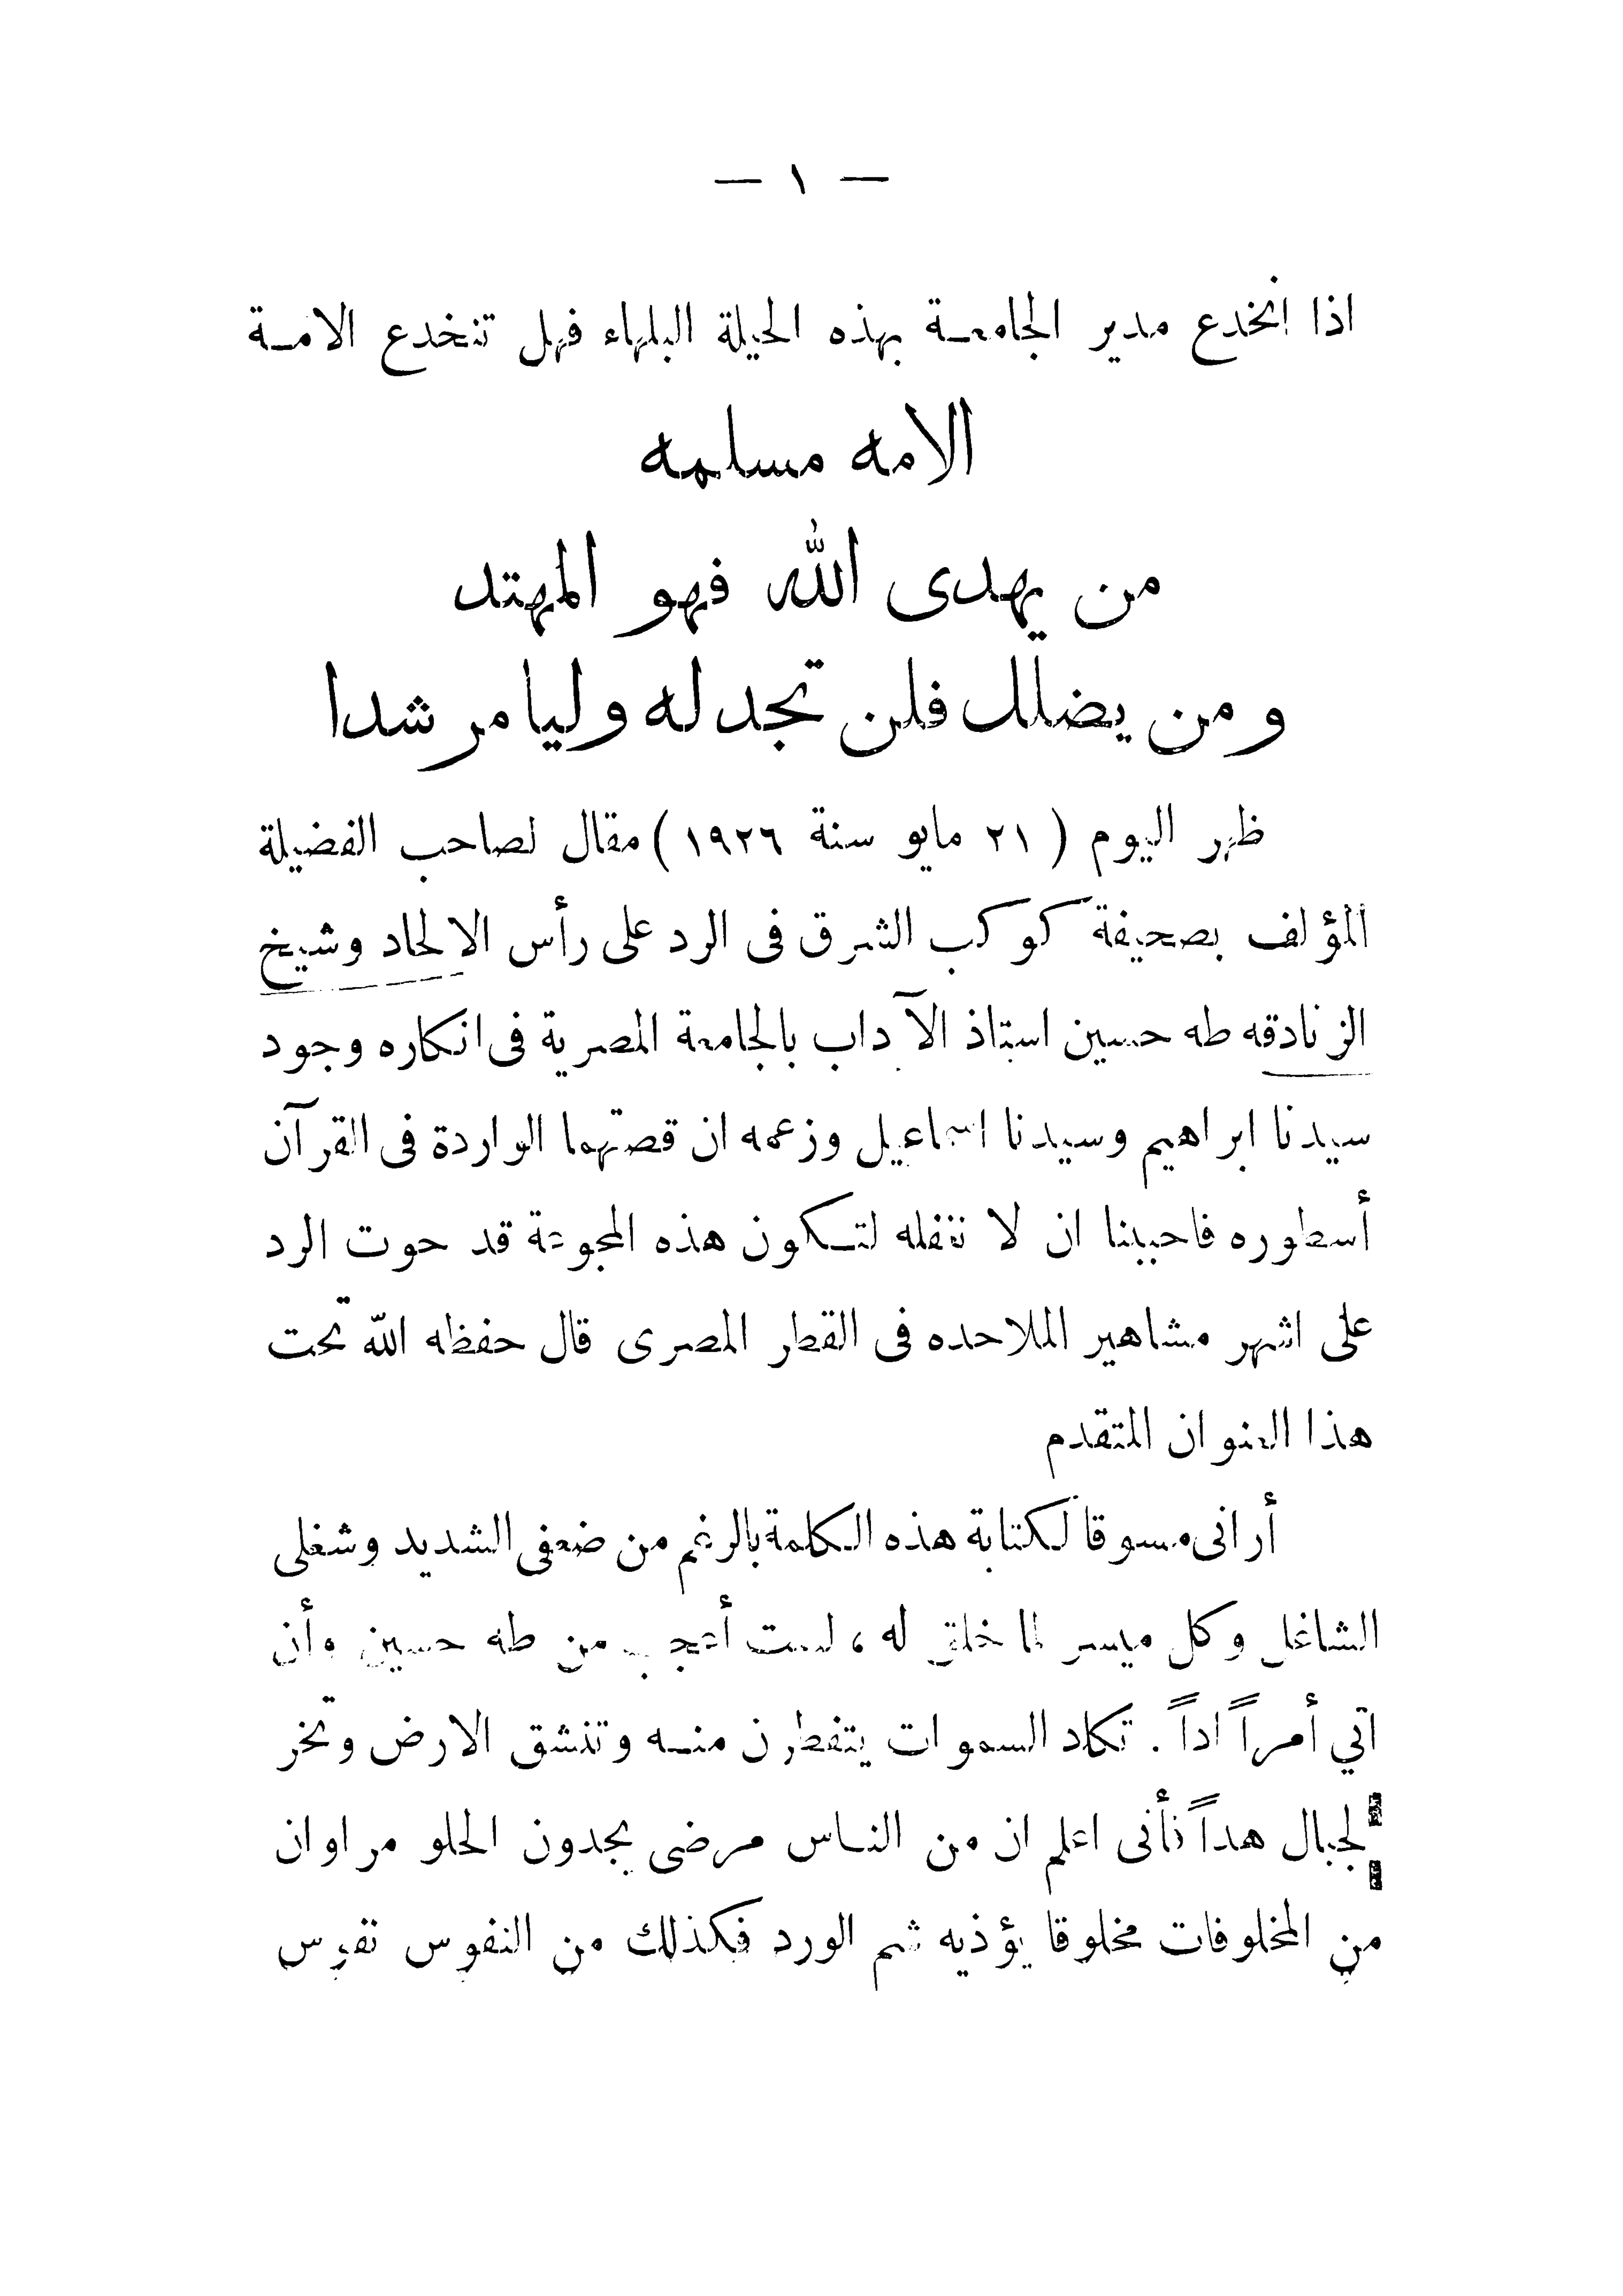 — ١ —
اذا انخدع مدير الجامعة بهذه الحيلة البلهاء فهل تنخدع الامة
الامه مسلمه
من يهدى الله فهو المهتد
ومن يضلل فلن تجد له وليا مرشدا
ظهر اليوم ( ٢١ مايو سنة ١٩٢٦ ) مقال لصاحب الفضيلة
المؤلف بصحيفة كوكب الشرق فى الرد على رأس الالحاد وشيخ
الزنادقه طه حسين استاذ الآداب بالجامعة المصرية فى انكاره وجود
سيدنا ابراهيم وسيدنا اسماعيل وزعمه ان قصتهما الواردة فى القرآن
أسطوره فاحببنا ان لا نغفله لتكون هذه المجموعة قد حوت الرد
على اشهر مشاهير الملاحده فى القطر المصرى قال حفظه الله تحت
هذا العنوان المتقدم
أرانى مسوقا لكتابة هذه الكلمة بالرغم من ضعفى الشديد وشغلى
الشاغل وكل ميسر لما خلق له ، لست أعجب من طه حسين وأن
اتي أمراً اداً . تكاد السموات يتفطرن منه وتنشق الارض وتخر
لجبال هداً فأنى اعلم ان من الناس مرضى يجدون الحلو مرا وان
من المخلوفات مخلوقا يؤذيه شم الورد فكذلك من النفوس نفوس